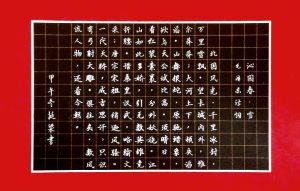 沁园春 雪
毛泽东诗词
北国风光，千里冰封，
万里雪飘。望长城内外，惟
余莽莽；大河上下，顿失滔
滔。山舞银蛇，原驰蜡象，
欲与天公试比高。须晴日，
看红装素裹，分外妖娆。江
山如此多娇，引无数英雄竞
折腰。惜秦皇汉武，略输文
采；唐宗宋祖，稍逊风骚。
一代天骄，成吉思汗，只识
弯弓射大雕。俱往矣，数风
流人物，还看今朝。
甲午冬 书